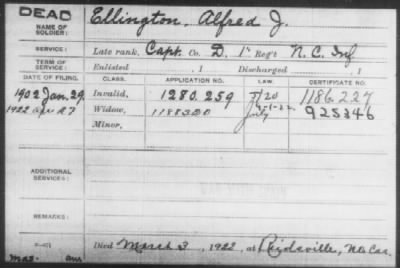 DEAD
NAME OF SOLDIER:
Ellington, Alfred J.
SERVICE:
Late rank, Capt. Co. D, 1st Reg't N.C. Inf
TERM OF SERVICE:
Enlisted , 1 Discharged , 1
DATE OF FILING. CLASS. APPLICATION NO. LAW. CERTIFICATE NO.
1902 Jan. 29. Invalid, 1280.259 5/20 1186.227
1922 Apr 27 Widow, 1188320 925346
Minor,
ADDITIONAL SERVICES:
REMARKS:
Died March 3, 1922, at Reidsville, No. Car.